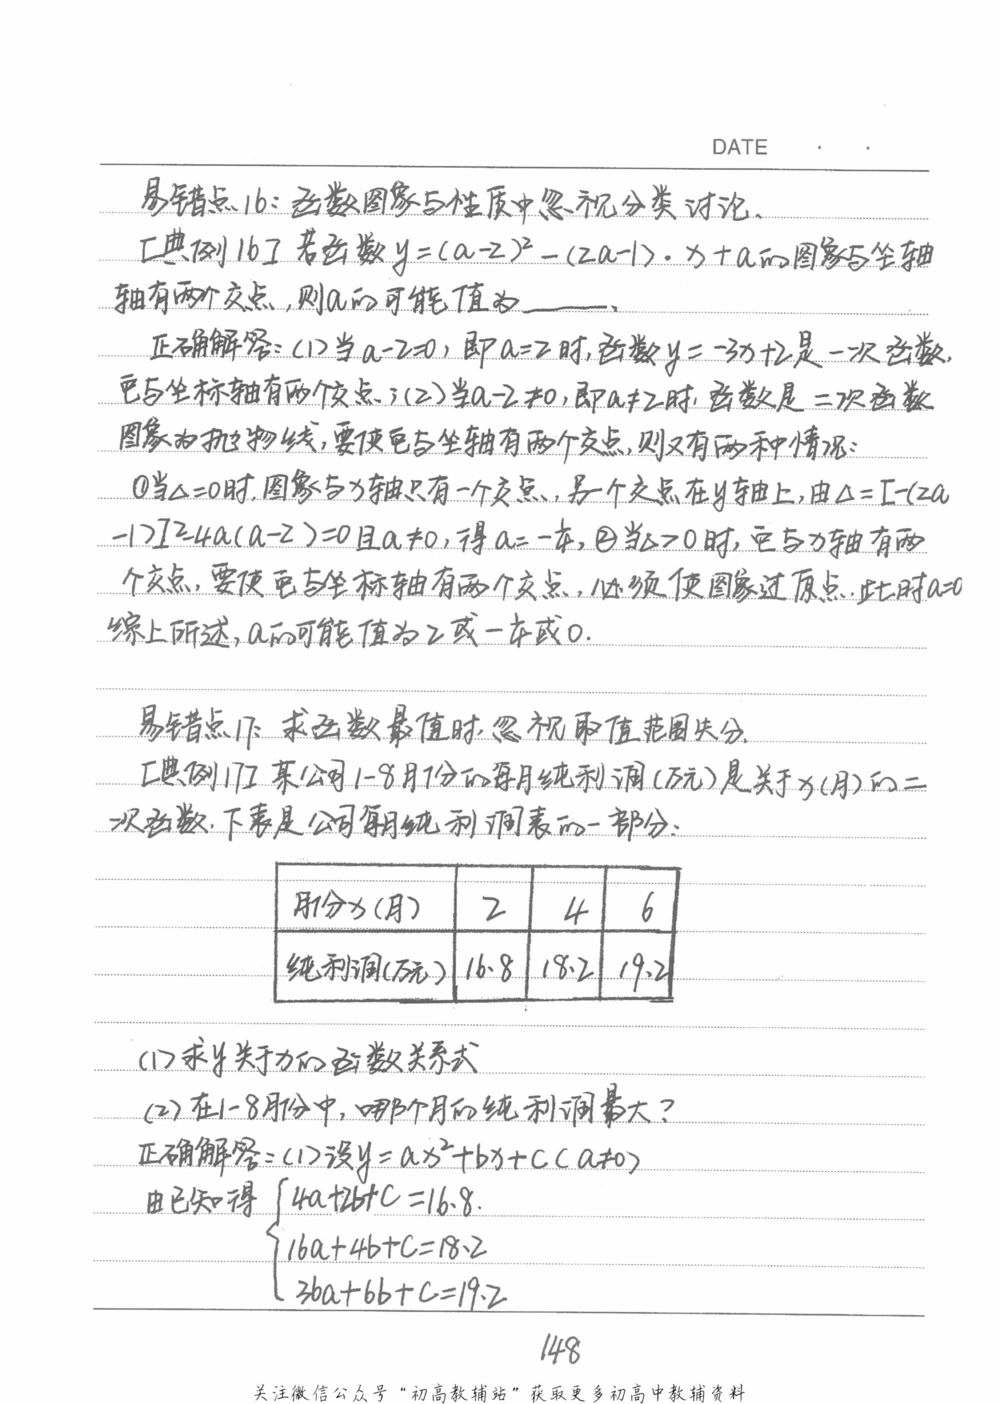 DATE · ·
易错点16:函数图象与性质中忽视分类讨论.
[典例16]若函数y=(a-2)²-(2a-1)·x+a的图象与坐轴
轴有两个交点,则a的可能值为______.
正确解答:(1)当a-2=0,即a=2时,函数y=-3x+2是一次函数,
它与坐标轴有两个交点;(2)当a-2≠0,即a≠2时,函数是二次函数
图象为抛物线,要使它与坐轴有两个交点,则又有两种情况:
①当△=0时,图象与x轴只有一个交点,另一个交点在y轴上,由△=[-(2a
-1)]²-4a(a-2)=0且a≠0,得a=-¼,②当△>0时,它与x轴有两
个交点,要使它与坐标轴有两个交点,必须使图象过原点.此时a=0
综上所述,a的可能值为2或-¼或0.
易错点17:求函数最值时,忽视取值范围失分.
[典例17]某公司1-8月份的每月纯利润(万元)是关于x(月)的二
次函数.下表是公司每月纯利润表的一部分:
月份x(月) 2 4 6
纯利润(万元) 16.8 18.2 19.2
(1)求y关于x的函数关系式
(2)在1-8月份中,哪个月的纯利润最大?
正确解答:(1)设y=ax²+bx+c(a≠0)
由已知得 4a+2b+c=16.8.
16a+4b+c=18.2
36a+6b+c=19.2
148
关注微信公众号“初高教辅站”获取更多初高中教辅资料